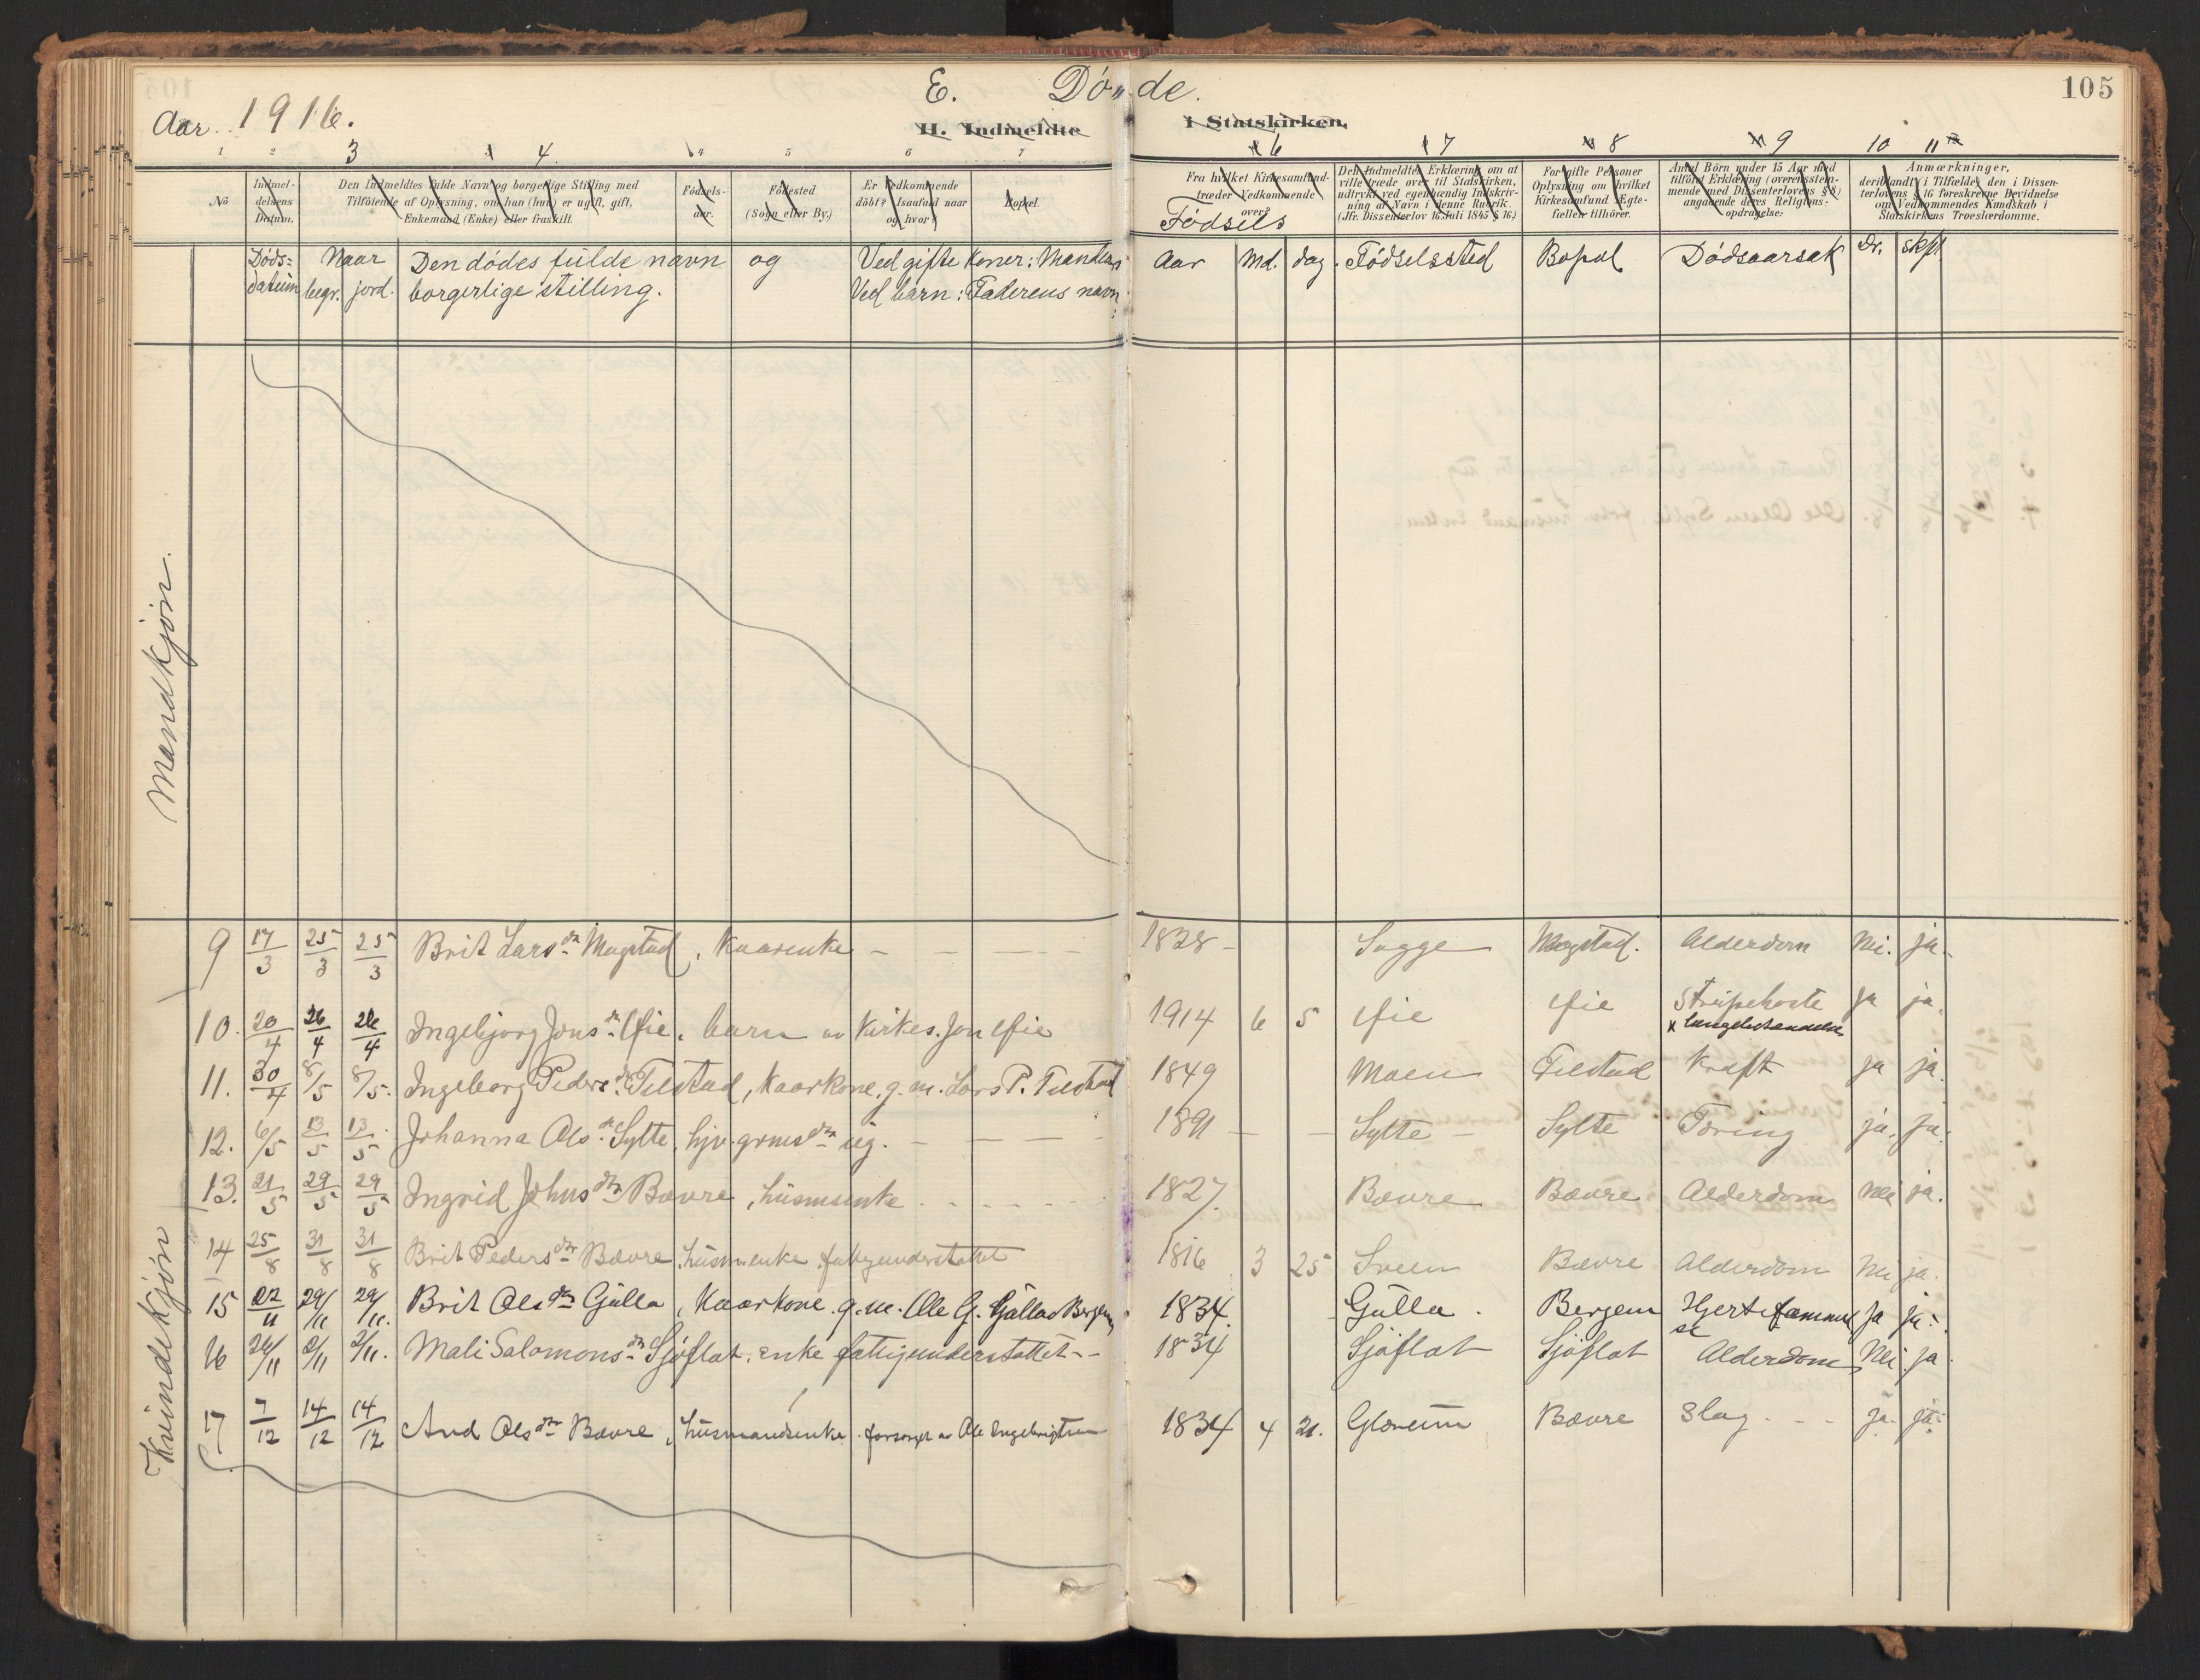 105
E. Dönde.
Aar 1916.
II. Indmeldte i Statskirken.
1 2 3 4 4 5 6 7 6 7 8 9 10 11
No
Indmeldelsens Datum.
Den Indmeldtes fulde Navn og borgerlige Stilling med
Tilföiende af Oplysning, om han (hun) er ugift, gift,
Enkemand (Enke) eller fraskilt.
Födselsaar.
Födested
(Sogn eller By.)
Er Vedkommende
döbt? I saafald naar
og hvor?
Bopæl.
Fra hvilket Kirkesamfund
træder Vedkommende
over?
Födsels
Den Indmeldtes Erklæring om at
ville træde over til Statskirken,
udtrykt ved egenhændig Indskrivning
af Navn i denne Rubrik.
(Jfr. Dissenterlov 16 Juli 1845 § 16.)
For gifte Personer
Oplysning om hvilket
Kirkesamfund Egtefællen
tilhörer.
Antal Börn under 15 Aar med
tilföiet Erklæring (overensstemmende
med Dissenterlovens § 8)
angaaende deres Religionsopdragelse:
Anmærkninger,
deriblandt i Tilfælde, den i Dissenterlovens
§ 16 foreskrevne Bevidnelse
om Vedkommendes Kundskab i
Statskirkens Troeslærdomme.
Dödsdatum
Naar begr. jord.
Den dödes fulde navn og
borgerlige stilling.
Ved gifte koner: Mandens
Ved barn: Faderens navn
Aar Md. dag. Födselssted Bopæl Dödsaarsak Dr. skpr
Mandkjøn.
Kvindekjøn
9 17/3 25/3 25/3 Brit Larsdtr Magstad, Kaarenke 1828 Sugge Magstad. Alderdom Nei. ja.
10. 20/4 26/4 26/4 Ingebjørg Jonsdtr Øie, barn av Kirkes. Jon Øie 1914 6 5 Øie Øie Strupehoste ja ja.
11. 30/4 8/5 8/5. Ingeborg Pedersdtr Tilstad, Kaarkone. g.m. Lars P. Tilstad 1849 Moen Tilstad Kræft ja ja.
12. 6/5 13/5 13/5 Johanna Olsdtr Sylte, hjv. grmsdtr ug. 1891 Sylte Sylte Tæring ja. ja.
13. 21/5 29/5 29/5 Ingrid Johnsdtr Bævre, husmsenke 1827. Bævre Bævre Alderdom nei ja.
14 25/8 31/8 31/8 Brit Pedersdtr Bævre, husmenke fattigunderstøttet 1816 3 25 Sveen Bævre Alderdom Nei ja.
15 22/11 29/11 29/11. Brit Olsdtr Gulla, Kaarkone. g.m. Ole G. Gulla Bergem 1834. Gulla. Bergem Hjertelammelse Ja ja.
16 26/11 2/11 2/11. Mali Salomonsdtr Sjöflot, enke fattigunderstøttet 1834 Sjöflot Sjöflot Alderdom Nei ja
17 7/12 14/12 14/12 And Olsdtr Bævre, husmandsenke. forsørget av Ole Ingebrigtsen 1834 4 21. Glærum Bævre Slag. ja. ja.